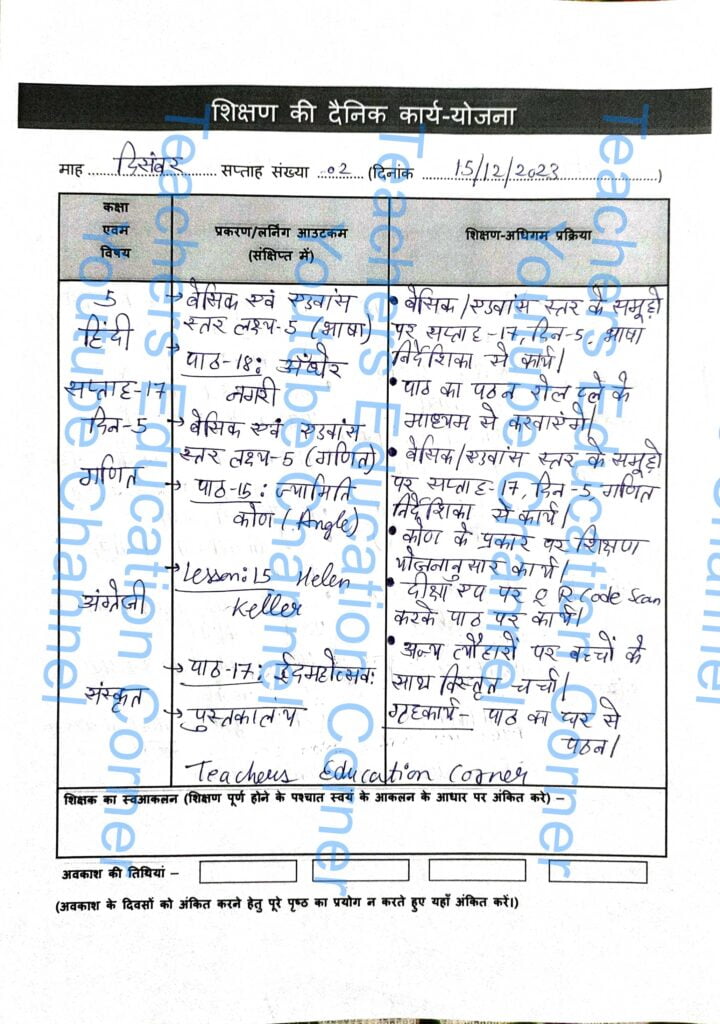 शिक्षण की दैनिक कार्य-योजना
माह दिसंबर सप्ताह संख्या 02 (दिनांक 15/12/2023)
कक्षा एवम विषय
प्रकरण/लर्निग आउटकम (संक्षिप्त में)
शिक्षण-अधिगम प्रक्रिया
5
हिंदी
सप्ताह-17
दिन-5
गणित
अंग्रेजी
संस्कृत
→ बेसिक एवं एडवांस
स्तर लक्ष्य-5 (भाषा)
→ पाठ-18: अंधेर
नगरी
→ बेसिक एवं एडवांस
स्तर लक्ष्य-5 (गणित)
→ पाठ-15: ज्यामिति
कोण (Angle)
→ Lesson:15 Helen
Keller
→ पाठ-17: ईदमहोत्सवः
→ पुस्तकालय
• बेसिक/एडवांस स्तर के समूहों
पर सप्ताह-17, दिन-5, भाषा
निर्देशिका से कार्य।
• पाठ का पठन रोल प्ले के
माध्यम से करवाएंगे।
• बेसिक/एडवांस स्तर के समूहों
पर सप्ताह-17, दिन-5, गणित
निर्देशिका से कार्य।
• कोण के प्रकार पर शिक्षण
योजनानुसार कार्य।
• दीक्षा एप पर QR Code Scan
करके पाठ पर कार्य।
• अन्य त्यौहारों पर बच्चों के
साथ विस्तृत चर्चा।
गृहकार्य- पाठ का घर से
पठन।
Teachers Education Corner
शिक्षक का स्वआकलन (शिक्षण पूर्ण होने के पश्चात स्वयं के आकलन के आधार पर अंकित करे) –
अवकाश की तिथियां –
(अवकाश के दिवसों को अंकित करने हेतु पूरे पृष्ठ का प्रयोग न करते हुए यहाँ अंकित करें।)
Teachers Education Corner
Youtube Channel
Teachers Education Corner
Youtube Channel
Teachers Education Corner
Youtube Channel